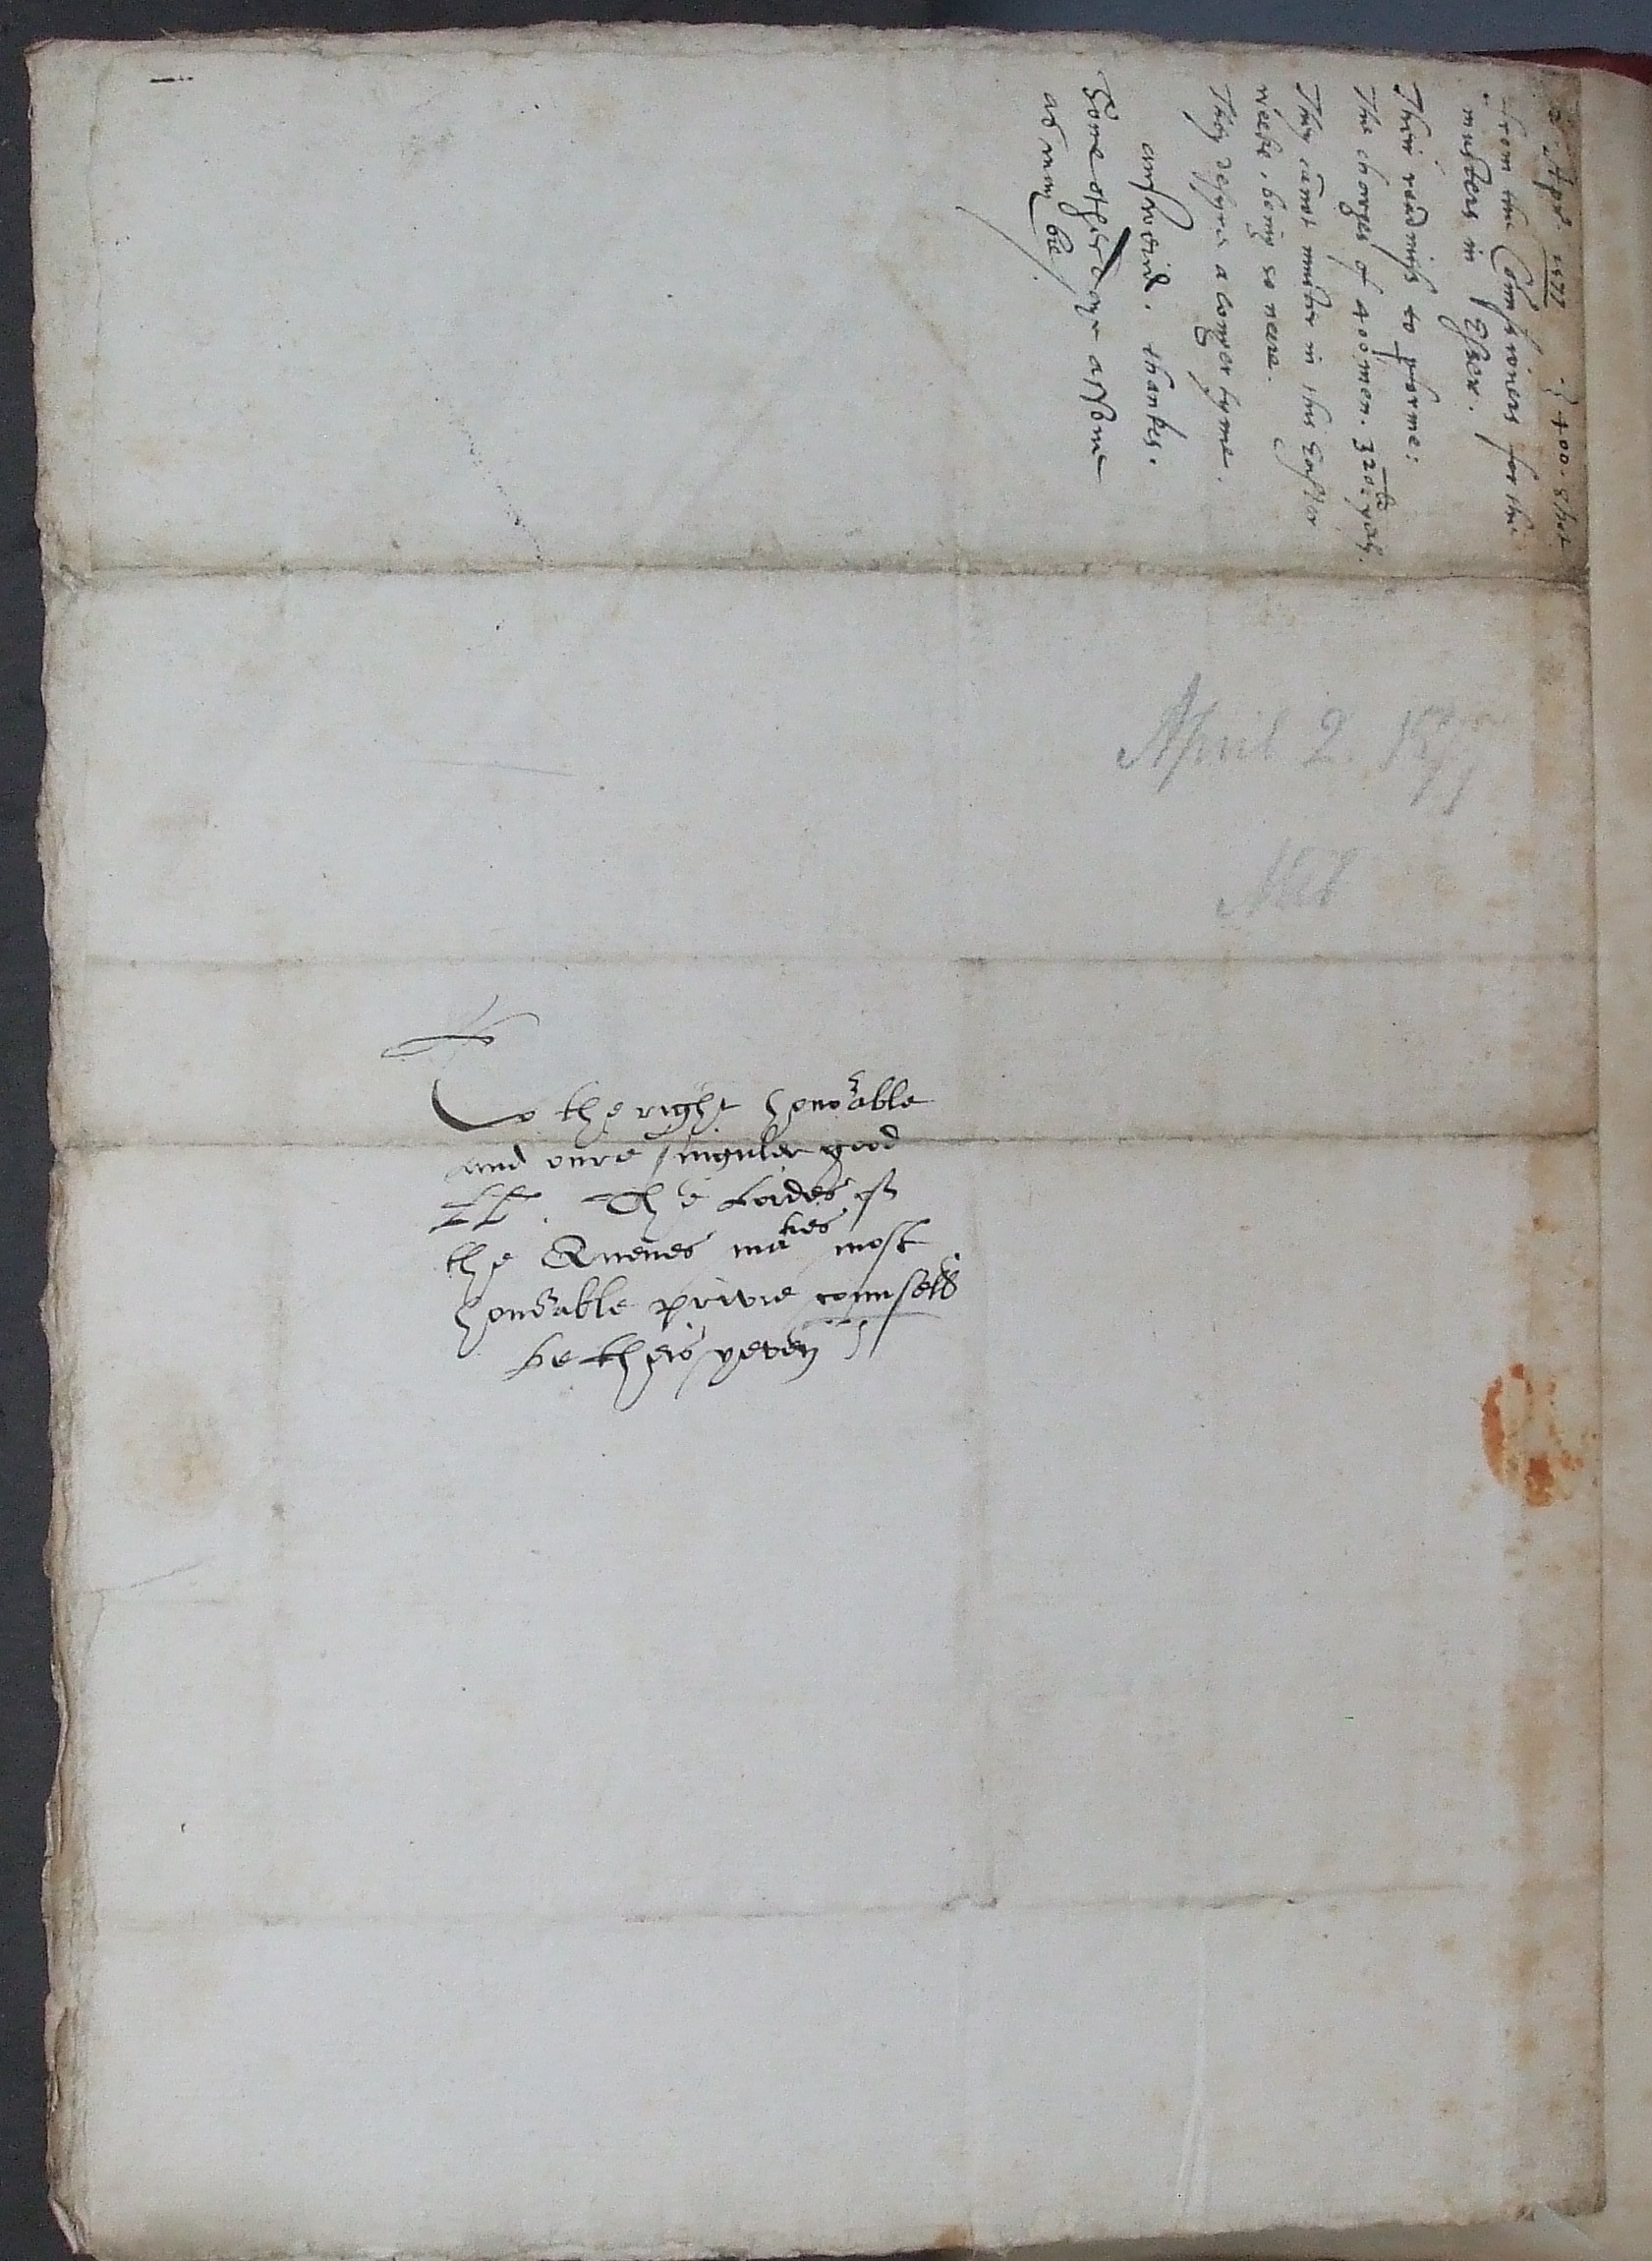 2. Apr. 1577 } 400. shot
From the Comissioners for the
musters in Essex.
Their readines to performe:
The charges of 400 men. 320 li
They canot muster in this Easter
weeke, being so neere.
They desyre a longer tyme.
answered. thankes.
Some other daye assone
as may be.
April 2. 1577
To the right honorable
and oure singuler good
LL. The Lordes of
the Quenes maties most
honorable privie counsell
be this yeven